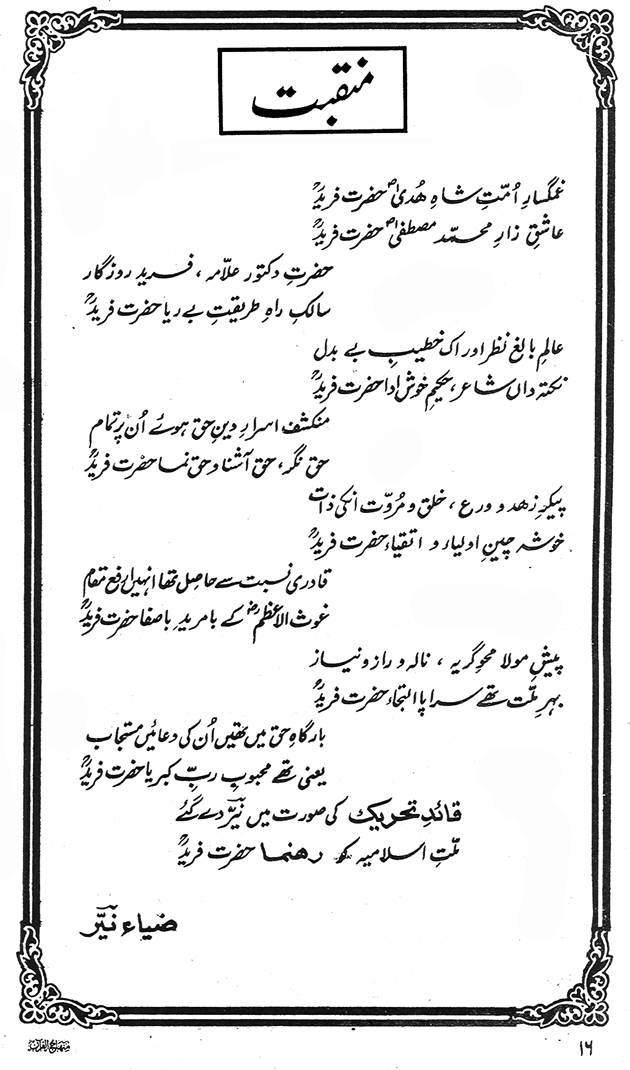 منقبت
غمگسارِ اُمّتِ شاہِ ھُدیٰؐ حضرت فریدؒ
عاشقِ زارِ محمّد مصطفیٰؐ حضرت فریدؒ
حضرتِ دکتور علّامہ، فریدِ روزگار
سالکِ راہِ طریقیتِ بے ریا حضرت فریدؒ
عالمِ بالغ نظر اور اک خطیبِ بے بدل
نکتہ داں شاعر، حکیمِ خوش ادا حضرت فریدؒ
منکشف اسرارِ دینِ حق ہوئے اُن پر تمام
حق نگر، حق آشنا و حق نما حضرت فریدؒ
پیکرِ زھد و ورع، خلق و مُروّت انکی ذات
خوشہ چینِ اولیاء و اتقیاء حضرت فریدؒ
قادری نسبت سے حاصل تھا انہیں ارفع مقام
غوث الاعظمؓ کے بامریدِ باصفا حضرت فریدؒ
پیشِ مولا محوِ گریہ، نالہ و راز و نیاز
بہرِ ملّت تھے سراپا التجاء حضرت فریدؒ
بارگاہِ حق میں تھیں اُن کی دعائیں مستجاب
یعنی تھے محبوبِ ربِّ کبریا حضرت فریدؒ
قائدِ تحریک کی صورت میں نیّرؔ دے گئے
ملّتِ اسلامیہ کو رھنما حضرت فریدؒ
ضیاء نیّرؔ
منہاج القرآن
۱۶